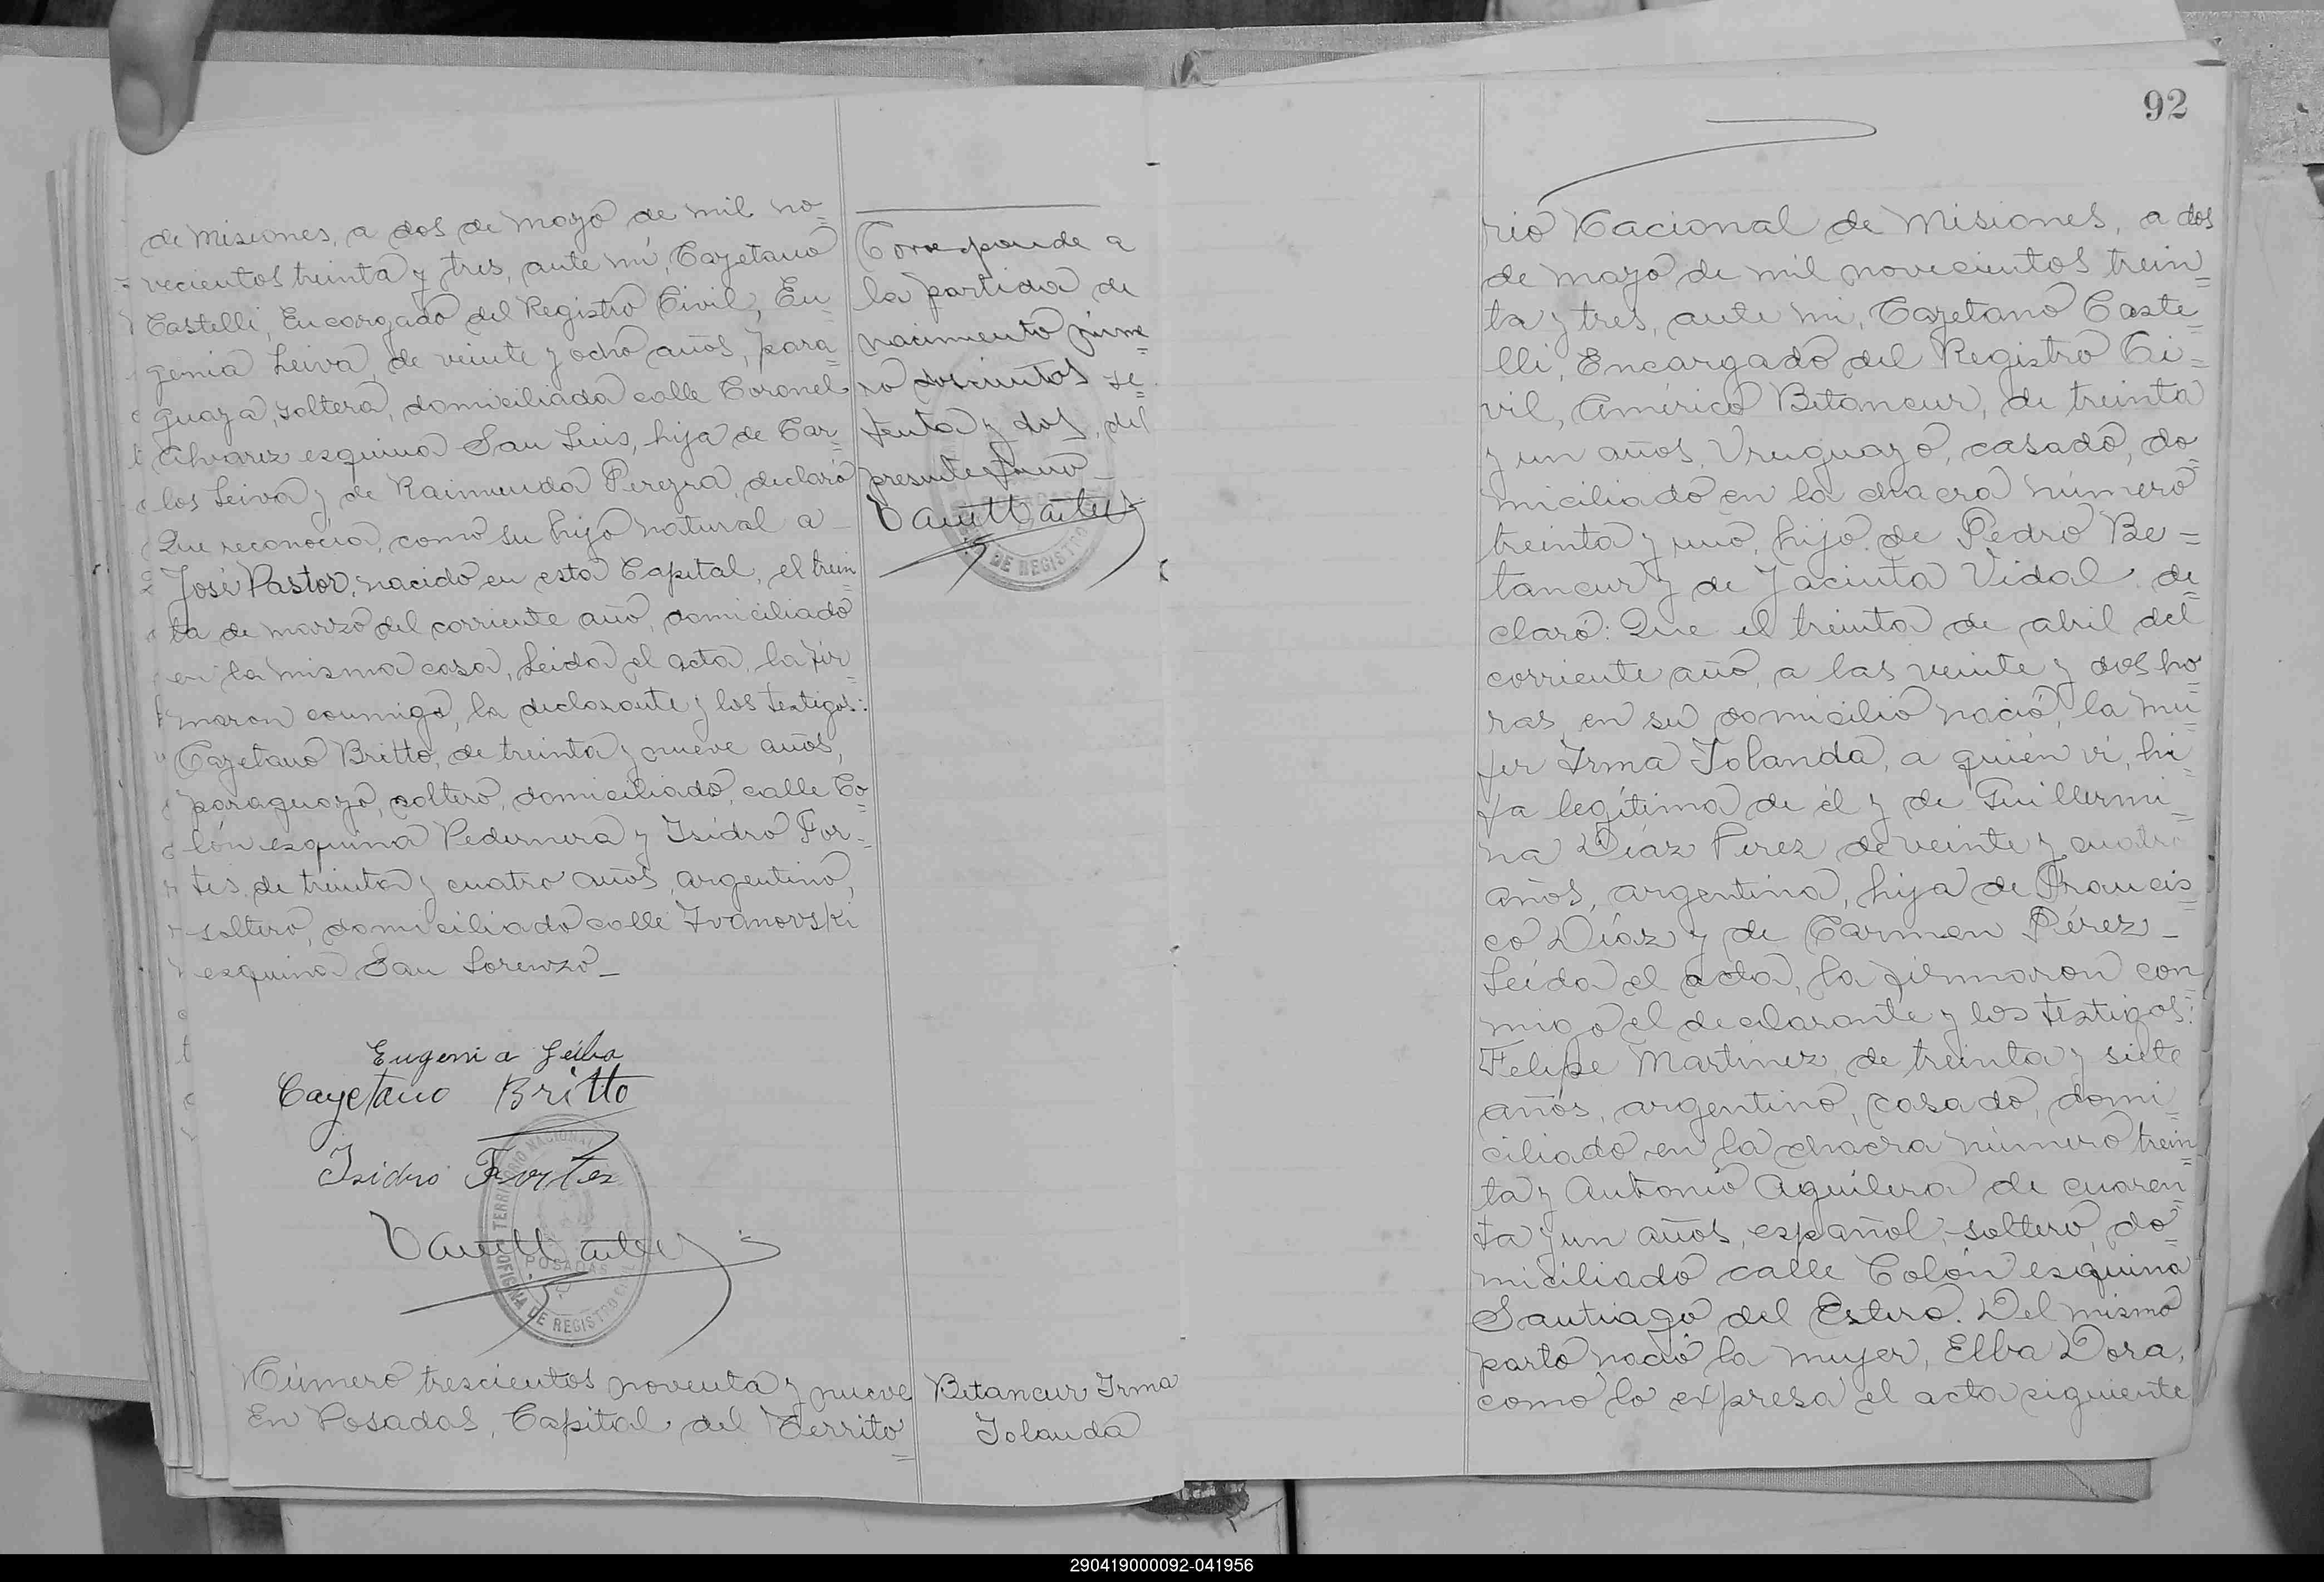 de Misiones, a dos de mayo de mil no=
vecientos treinta y tres, ante mi, Cayetano
Castelli, Encargado del Registro Civil, Eu=
genia Leiva, de veinte y ocho años, para=
guaya, soltera, domiciliada calle Coronel
Alvarez esquina San Luis, hija de Car=
los Leiva y de Raimunda Pereyra, declaró
Que reconocia, como su hijo natural a
José Pastor, nacido en esta Capital, el trein=
ta de marzo del corriente año, domiciliado
en la misma casa, Leida el acta, la fir=
maron conmigo, la declarante y los testigos:
Cayetano Britto, de treinta y nueve años,
paraguayo, soltero, domiciliado, calle Co=
lón esquina Pedernera y Isidro For=
tes, de treinta y cuatro años, argentino,
soltero, domiciliado calle Ivanovski
esquina San Lorenzo_
Eugenia Leiba
Cayetano Britto
Isidro Fortes
OFICINA DE REGISTRO CIVIL
TERRITORIO NACIONAL
POSADAS
Número trescientos noventa y nueve
En Posadas, Capital del Territo=
Corresponde a
la partida de
nacimiento núme=
ro doscientos se=
tenta y dos, del
presente
DE REGISTRO
Betancur Irma
Iolanda
92
rio Nacional de Misiones, a dos
de mayo de mil novecientos trein=
ta y tres, ante mi, Cayetano Caste=
lli, Encargado del Registro Ci=
vil, Américo Betancur, de treinta
y un años, Uruguayo, casado, do=
miciliado en la chacra número
treinta y uno, hijo de Pedro Be=
tancur y de Jacinta Vidal, de=
claró: Que el treinta de abril del
corriente año, a las veinte y dos ho=
ras, en su domicilio nació, la mu=
jer Irma Iolanda, a quién vi, hi=
ja legítima de él y de Guillermi=
na Díaz Perez de veinte y cuatro
años, argentina, hija de Francis=
co Díaz y de Carmen Pérez_
Leida el acta, la firmaron con
migo el declarante y los testigos:
Felipe Martinez, de treinta y siete
años, argentino, casado, domi=
ciliado en la chacra número trein=
ta y Antonio Aguilera de cuaren=
ta y un años, español, soltero, do=
miciliado calle Colón esquina
Santiago del Estero. Del mismo
parto nació la mujer, Elba Dora,
como lo expresa el acta siguiente
290419000092-041956